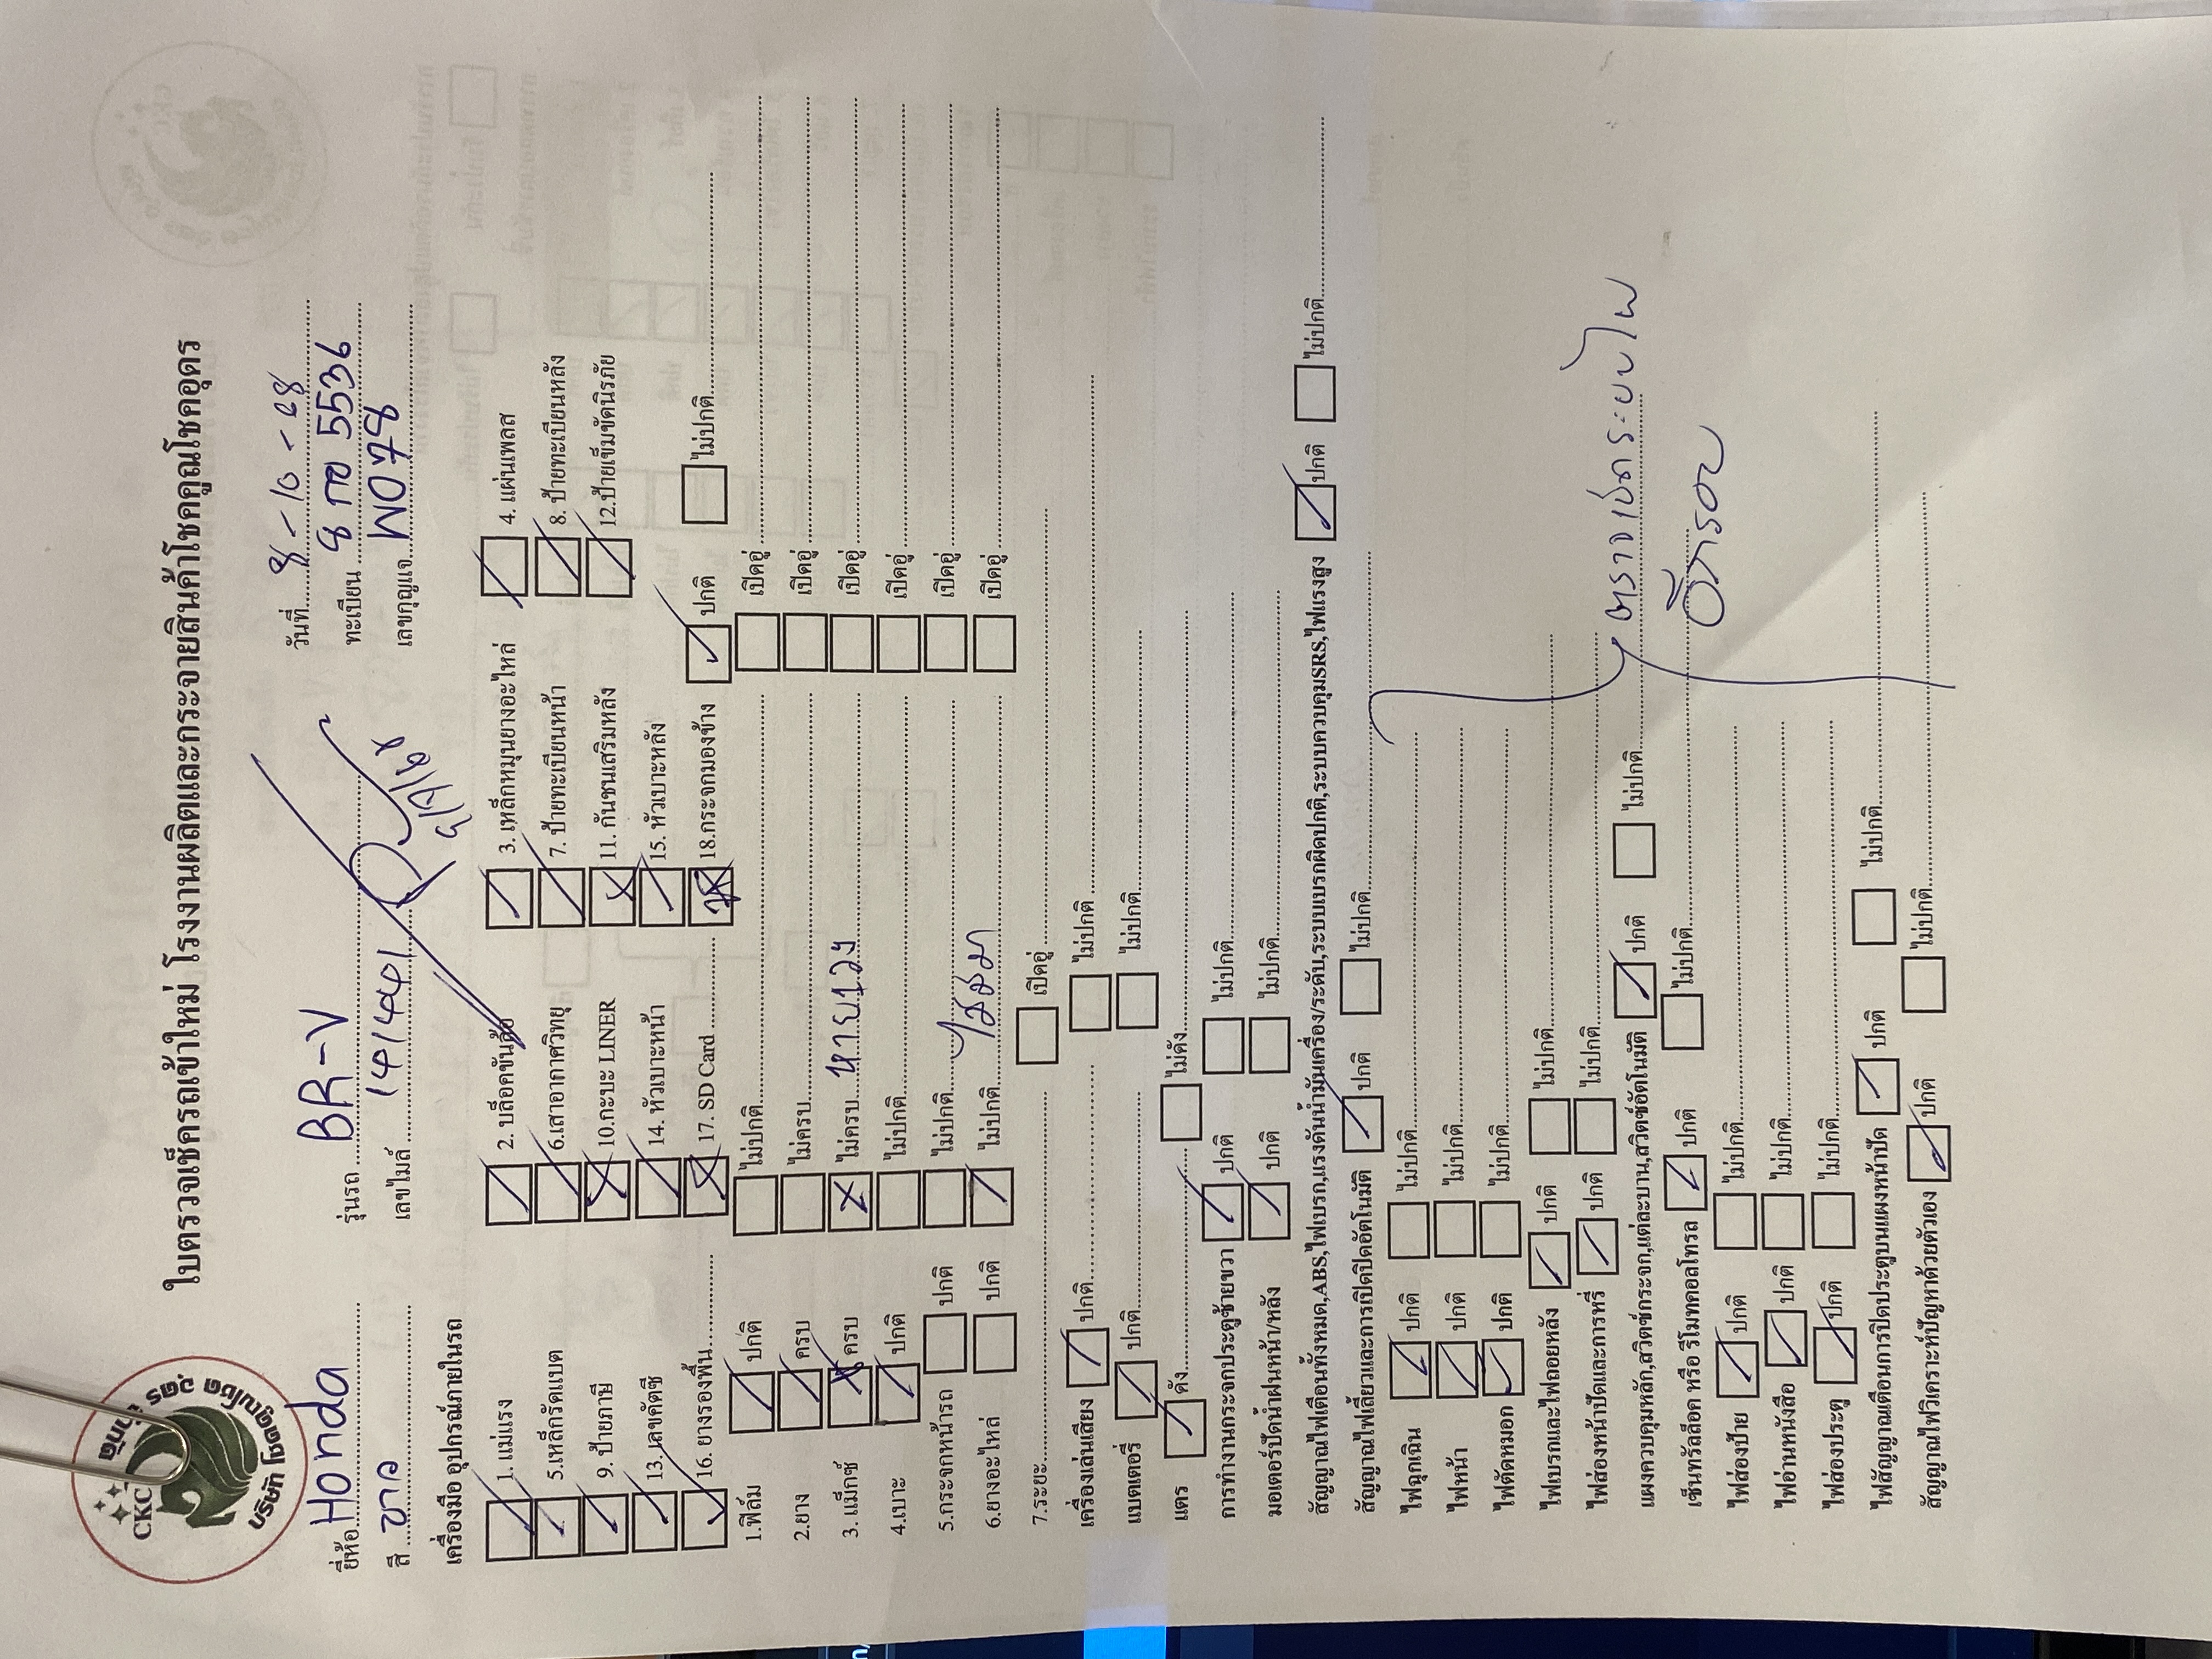 CKC
บริษัท โชคคูณโชค อุดร จำกัด
ใบตรวจเช็ครถเข้าใหม่ โรงงานผลิตและกระจายสินค้าโชคคูณโชคอุดร
วันที่ 8-10-68
ยี่ห้อ Honda รุ่นรถ BR-V ทะเบียน 8 กข 5536
สี ขาว เลขไมล์ 141401 เลขกุญแจ W078
เครื่องมือ อุปกรณ์ภายในรถ
1. แม่แรง 2. บล็อคขันล้อ 3. เหล็กหมุนยางอะไหล่ 4. แผ่นเพลส
5.เหล็กรัดแบต 6.เสาอากาศวิทยุ 7. ป้ายทะเบียนหน้า 8. ป้ายทะเบียนหลัง
9. ป้ายภาษี 10.กะบะ LINER 11. กันชนเสริมหลัง 12.ป้ายเข็มขัดนิรภัย
13. เลขคัตซี 14. หัวเบาะหน้า 15. หัวเบาะหลัง
16. ยางรองพื้น 17. SD Card 18.กระจกมองข้าง ปกติ ไม่ปกติ
1.ฟิล์ม ปกติ ไม่ปกติ เปิดอู่
2.ยาง ครบ ไม่ครบ เปิดอู่
3. แม็กซ์ ครบ ไม่ครบ หาย1วง เปิดอู่
4.เบาะ ปกติ ไม่ปกติ เปิดอู่
5.กระจกหน้ารถ ปกติ ไม่ปกติ เปิดอู่
6.ยางอะไหล่ ปกติ ไม่ปกติ ไม่มี เปิดอู่
7.ระยะ เปิดอู่
เครื่องเล่นเสียง ปกติ ไม่ปกติ
แบตเตอรี่ ปกติ ไม่ปกติ
แตร ดัง ไม่ดัง
การทำงานกระจกประตูซ้ายขวา ปกติ ไม่ปกติ
มอเตอร์ปัดน้ำฝนหน้า/หลัง ปกติ ไม่ปกติ
สัญญาณไฟเตือนทั้งหมด,ABS,ไฟเบรก,แรงดันน้ำมันเครื่อง/ระดับ,ระบบเบรกผิดปกติ,ระบบควบคุมSRS,ไฟแรงสูง ปกติ ไม่ปกติ
สัญญาณไฟเลี้ยวและการเปิดปิดอัตโนมัติ ปกติ ไม่ปกติ
ไฟฉุกเฉิน ปกติ ไม่ปกติ
ไฟหน้า ปกติ ไม่ปกติ
ไฟตัดหมอก ปกติ ไม่ปกติ
ไฟเบรกและไฟถอยหลัง ปกติ ไม่ปกติ
ไฟส่องหน้าปัดและการหรี่ ปกติ ไม่ปกติ
ตรวจเช็คระบบไฟ
แผงควบคุมหลัก,สวิตช์กระจก,แต่ละบาน,สวิตซ์อัตโนมัติ ปกติ ไม่ปกติ
เซ็นทรัลล็อค หรือ รีโมทคอลโทรล ปกติ ไม่ปกติ
ไฟส่องป้าย ปกติ ไม่ปกติ
ไฟอ่านหนังสือ ปกติ ไม่ปกติ
ไฟส่องประตู ปกติ ไม่ปกติ
ไฟสัญญาณเตือนการปิดประตูบนแผงหน้าปัด ปกติ ไม่ปกติ
สัญญาณไฟวิเคราะห์ปัญหาด้วยตัวเอง ปกติ ไม่ปกติ